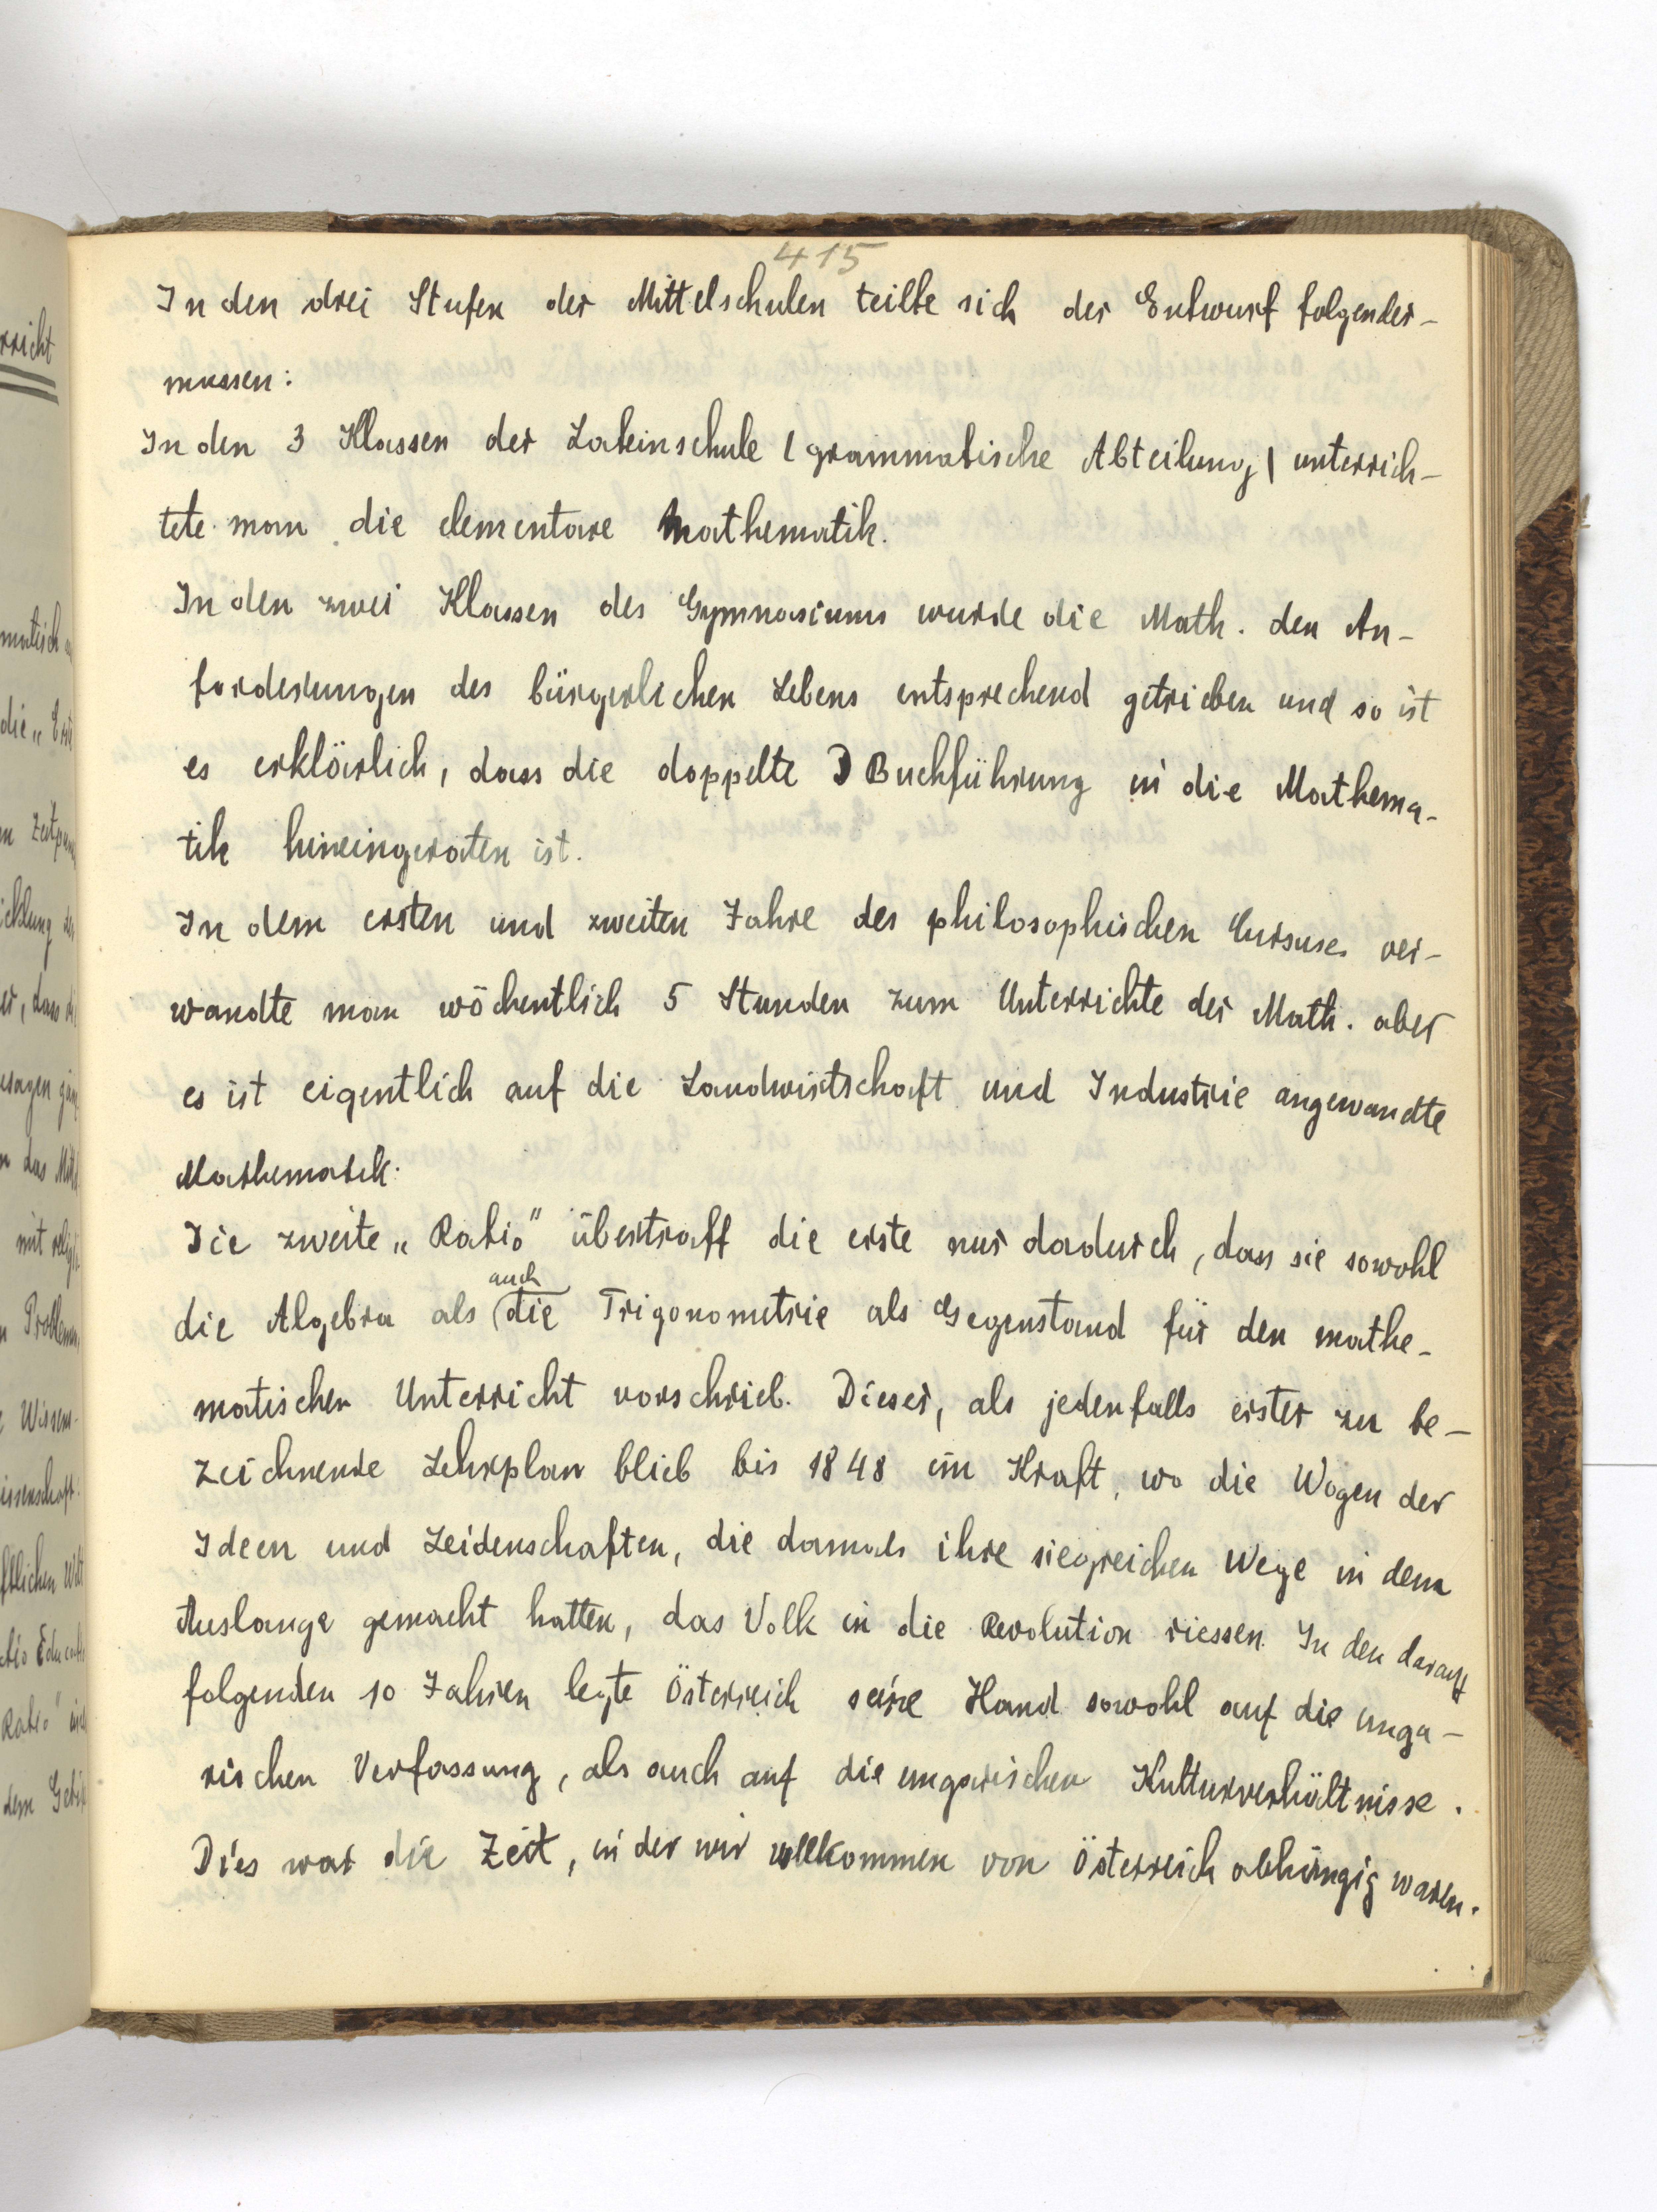 415
In den drei Stufen der Mittelschulen teilte sich der Entwurf folgender-
massen:
In den 3 Klassen der Lateinschule / grammatische Abteilung / unterrich-
tete man die elementare Mathematik.
In den zwei Klassen des Gymnasiums wurde die Math. den An-
forderungen des bürgerlichen Lebens entsprechend getrieben und so ist
es erklärlich, dass die doppelte Buchführung in die Mathema-
tik hineingeraten ist.
In dem ersten und zweiten Jahre des philosophischen Cursuses ver-
wandte man wöchentlich 5 Stunden zum Unterrichte der Math. aber
es ist eigentlich auf die Landwirtschaft und Industrie angewandte
Mathematik.
Die zweite „Ratio" übertraff die erste nur dadurch, dass sie sowohl
die Algebra als auch die Trigonometrie als Gegenstand für den mathe-
matischen Unterricht vorschrieb. Dieser, als jedenfalls erster zu be-
zeichnende Lehrplan blieb bis 1848 in Kraft, wo die Wogen der
Ideen und Leidenschaften, die damals ihre siegreichen Wege in dem
Auslange gemacht hatten, das Volk in die Revolution riessen. In den darauf
folgenden 10 Jahren legte Österreich seine Hand sowohl auf die unga-
rischen Verfassung, als auch auf die ungarischen Kulturverhältnisse.
Dies war die Zeit, in der wir vollkommen von Österreich abhängig waren.